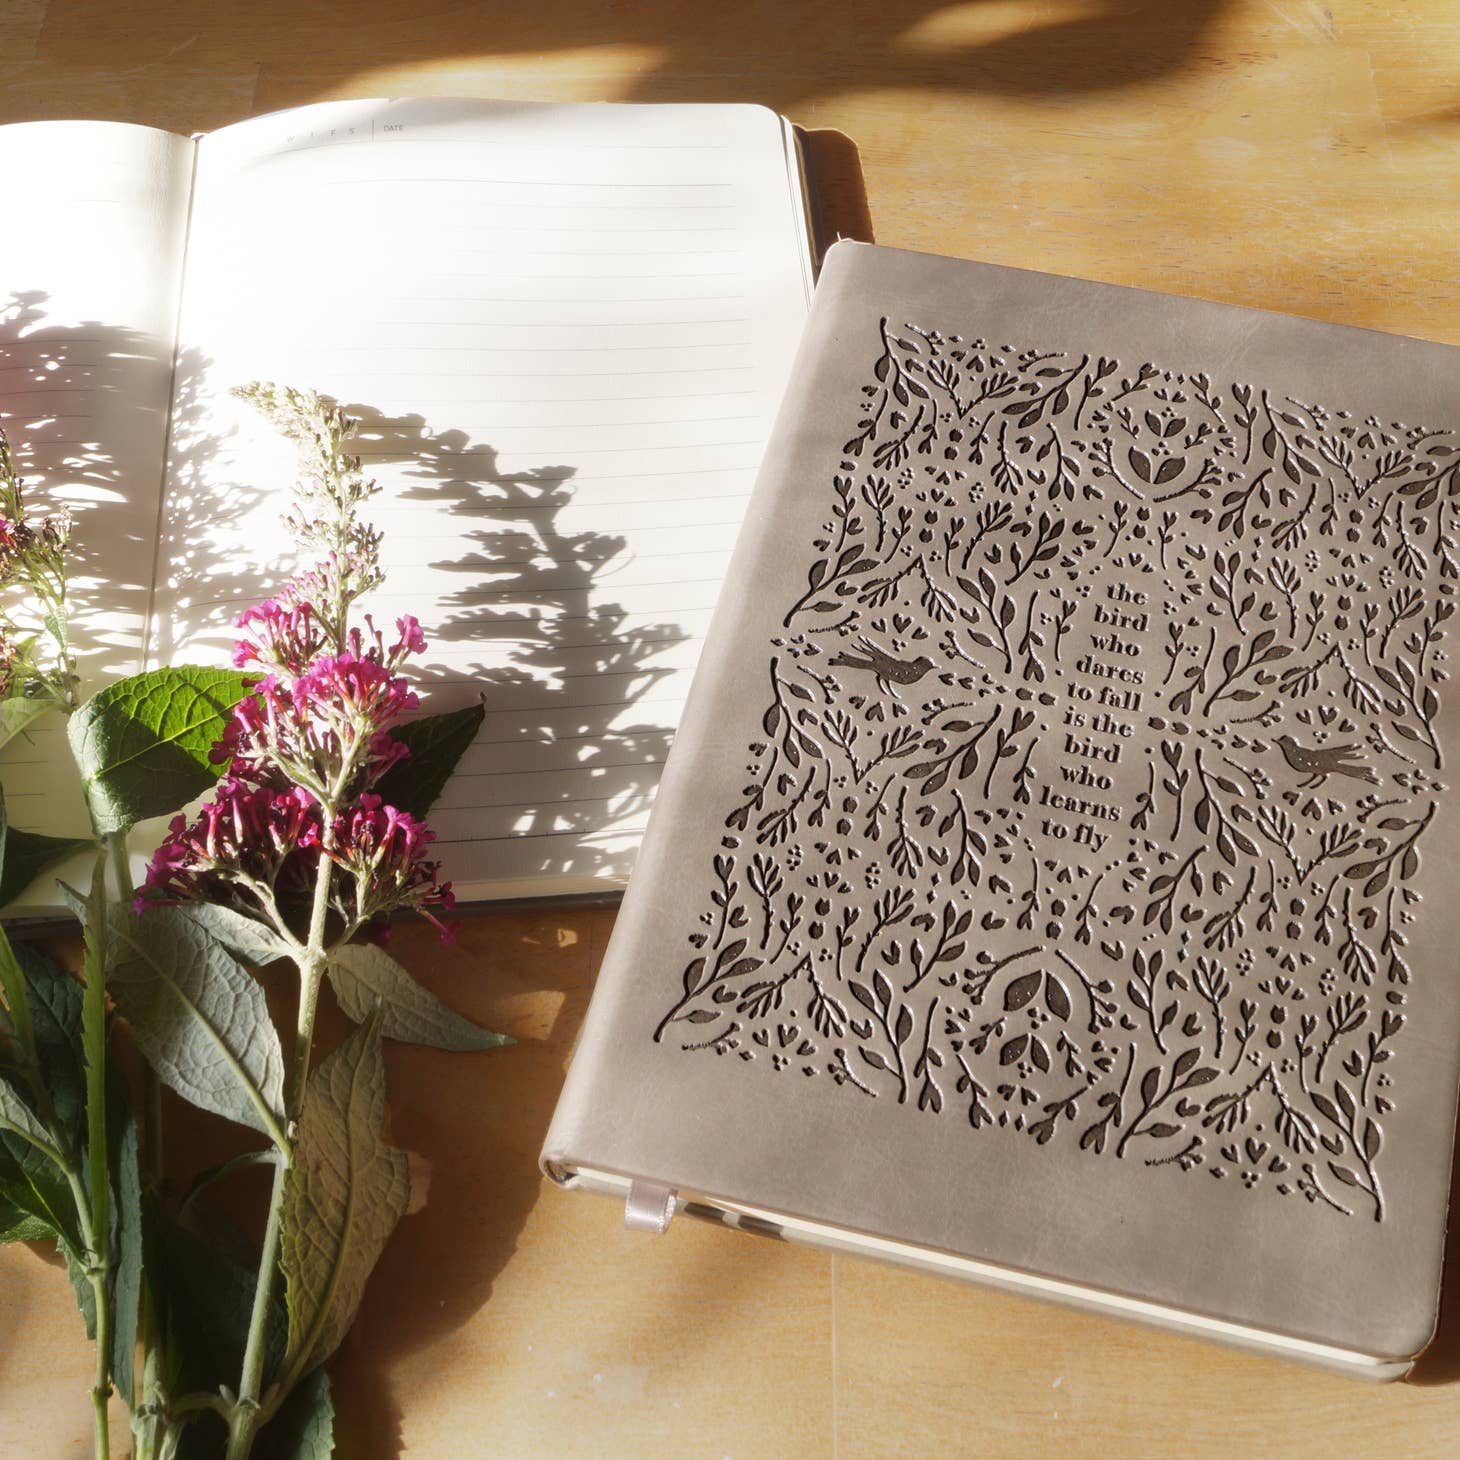 W T F S DATE
the
bird
who
dares
to fall
is the
bird
who
learns
to fly